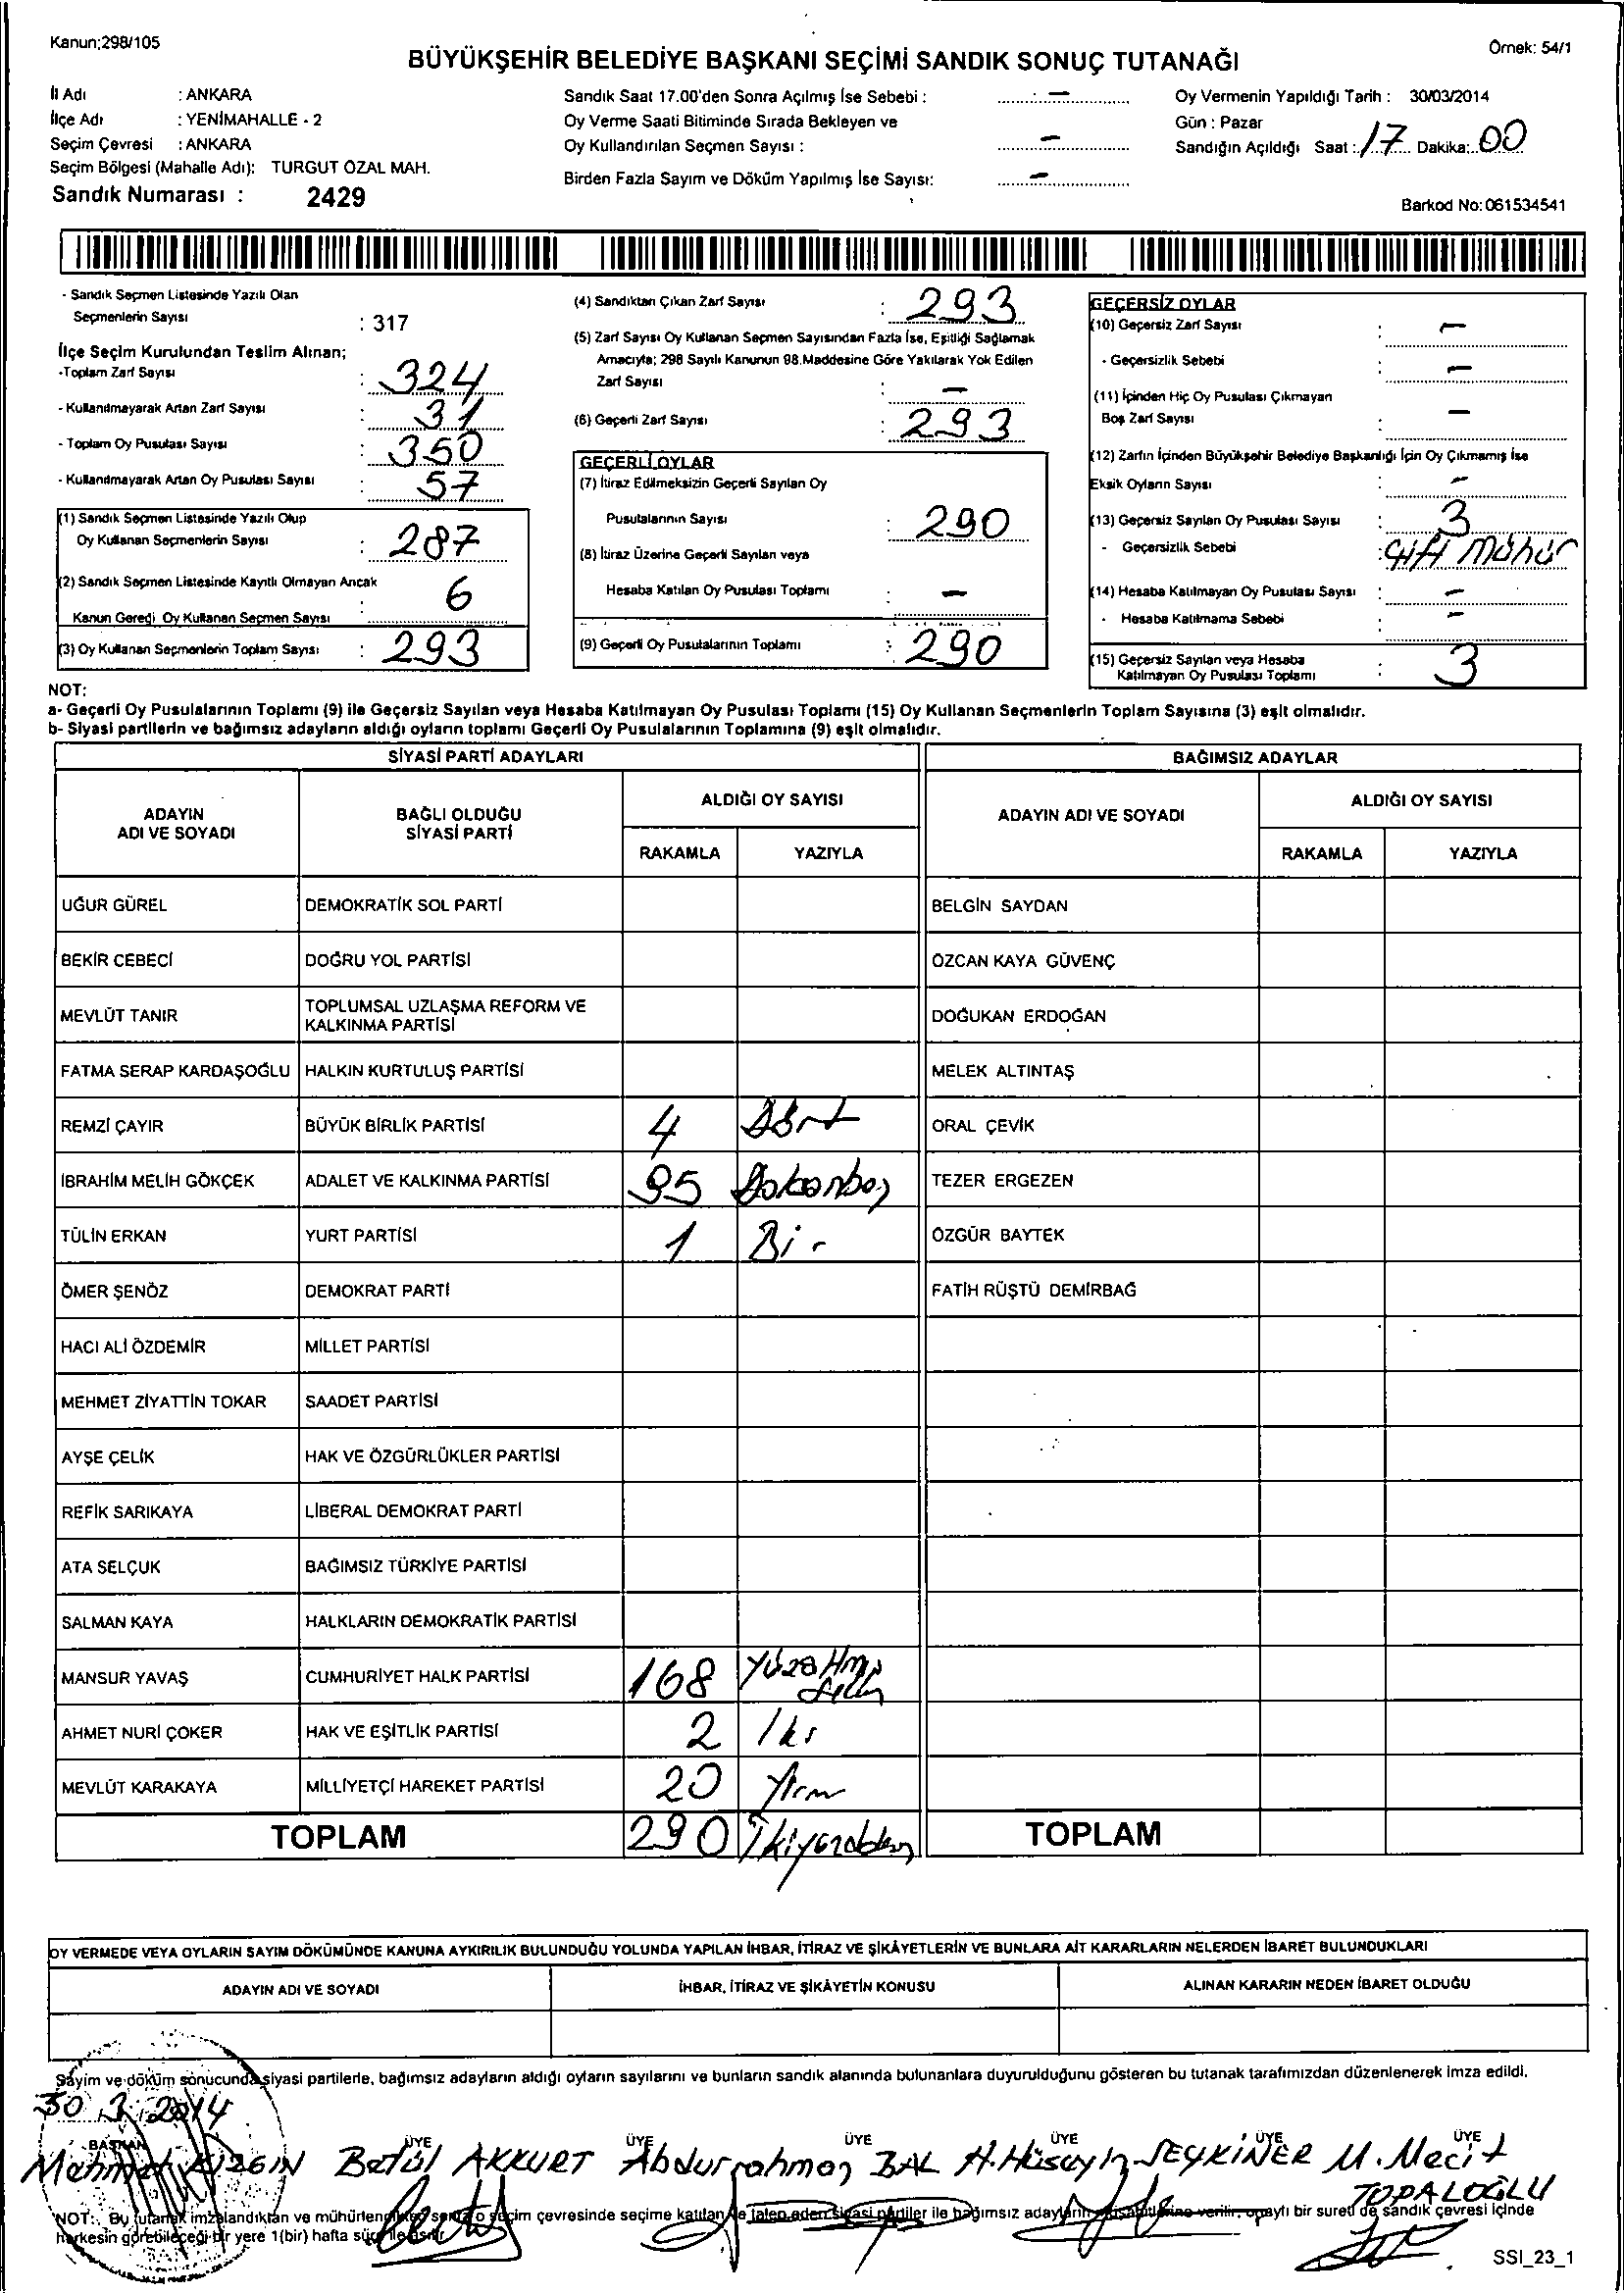 Kanun;298/105
Örnek: 54/1
BÜYÜKŞEHİR BELEDİYE BAŞKANI SEÇİMİ SANDIK SONUÇ TUTANAĞI
İl Adı : ANKARA
İlçe Adı : YENİMAHALLE - 2
Seçim Çevresi : ANKARA
Seçim Bölgesi (Mahalle Adı): TURGUT ÖZAL MAH.
Sandık Numarası : 2429
Sandık Saat 17.00'den Sonra Açılmış İse Sebebi : –
Oy Verme Saati Bitiminde Sırada Bekleyen ve
Oy Kullandırılan Seçmen Sayısı : –
Birden Fazla Sayım ve Döküm Yapılmış İse Sayısı: –
Oy Vermenin Yapıldığı Tarih : 30/03/2014
Gün : Pazar
Sandığın Açıldığı Saat : 17 Dakika: 00
Barkod No: 061534541
- Sandık Seçmen Listesinde Yazılı Olan
Seçmenlerin Sayısı : 317
İlçe Seçim Kurulundan Teslim Alınan;
-Toplam Zarf Sayısı : 324
- Kullanılmayarak Artan Zarf Sayısı : 31
- Toplam Oy Pusulası Sayısı : 350
- Kullanılmayarak Artan Oy Pusulası Sayısı : 57
(1) Sandık Seçmen Listesinde Yazılı Olup
Oy Kullanan Seçmenlerin Sayısı : 287
(2) Sandık Seçmen Listesinde Kayıtlı Olmayan Ancak
Kanun Gereği Oy Kullanan Seçmen Sayısı : 6
(3) Oy Kullanan Seçmenlerin Toplam Sayısı : 293
(4) Sandıktan Çıkan Zarf Sayısı : 293
(5) Zarf Sayısı Oy Kullanan Seçmen Sayısından Fazla İse, Eşitliği Sağlamak
Amacıyla; 298 Sayılı Kanunun 98.Maddesine Göre Yakılarak Yok Edilen
Zarf Sayısı : –
(6) Geçerli Zarf Sayısı : 293
GEÇERLİ OYLAR
(7) İtiraz Edilmeksizin Geçerli Sayılan Oy
Pusulalarının Sayısı : 290
(8) İtiraz Üzerine Geçerli Sayılan veya
Hesaba Katılan Oy Pusulası Toplamı : –
(9) Geçerli Oy Pusulalarının Toplamı : 290
GEÇERSİZ OYLAR
(10) Geçersiz Zarf Sayısı : –
- Geçersizlik Sebebi : –
(11) İçinden Hiç Oy Pusulası Çıkmayan
Boş Zarf Sayısı : –
(12) Zarfın İçinden Büyükşehir Belediye Başkanlığı İçin Oy Çıkmamış İse
Eksik Oyların Sayısı : –
(13) Geçersiz Sayılan Oy Pusulası Sayısı : 3
- Geçersizlik Sebebi : Çift Mühür
(14) Hesaba Katılmayan Oy Pusulası Sayısı : –
- Hesaba Katılmama Sebebi : –
(15) Geçersiz Sayılan veya Hesaba
Katılmayan Oy Pusulası Toplamı : 3
NOT:
a- Geçerli Oy Pusulalarının Toplamı (9) ile Geçersiz Sayılan veya Hesaba Katılmayan Oy Pusulası Toplamı (15) Oy Kullanan Seçmenlerin Toplam Sayısına (3) eşit olmalıdır.
b- Siyasi partilerin ve bağımsız adayların aldığı oyların toplamı Geçerli Oy Pusulalarının Toplamına (9) eşit olmalıdır.
SİYASİ PARTİ ADAYLARI BAĞIMSIZ ADAYLAR
ADAYIN ADI VE SOYADI BAĞLI OLDUĞU SİYASİ PARTİ ALDIĞI OY SAYISI ADAYIN ADI VE SOYADI ALDIĞI OY SAYISI
RAKAMLA YAZIYLA RAKAMLA YAZIYLA
UĞUR GÜREL DEMOKRATİK SOL PARTİ BELGİN SAYDAN
BEKİR CEBECİ DOĞRU YOL PARTİSİ ÖZCAN KAYA GÜVENÇ
MEVLÜT TANIR TOPLUMSAL UZLAŞMA REFORM VE KALKINMA PARTİSİ DOĞUKAN ERDOĞAN
FATMA SERAP KARDAŞOĞLU HALKIN KURTULUŞ PARTİSİ MELEK ALTINTAŞ
REMZİ ÇAYIR BÜYÜK BİRLİK PARTİSİ 4 Dört ORAL ÇEVİK
İBRAHİM MELİH GÖKÇEK ADALET VE KALKINMA PARTİSİ 95 Doksanbeş TEZER ERGEZEN
TÜLİN ERKAN YURT PARTİSİ 1 Bir ÖZGÜR BAYTEK
ÖMER ŞENÖZ DEMOKRAT PARTİ FATİH RÜŞTÜ DEMİRBAĞ
HACI ALİ ÖZDEMİR MİLLET PARTİSİ
MEHMET ZİYATTİN TOKAR SAADET PARTİSİ
AYŞE ÇELİK HAK VE ÖZGÜRLÜKLER PARTİSİ
REFİK SARIKAYA LİBERAL DEMOKRAT PARTİ
ATA SELÇUK BAĞIMSIZ TÜRKİYE PARTİSİ
SALMAN KAYA HALKLARIN DEMOKRATİK PARTİSİ
MANSUR YAVAŞ CUMHURİYET HALK PARTİSİ 168
AHMET NURİ ÇOKER HAK VE EŞİTLİK PARTİSİ 2 İki
MEVLÜT KARAKAYA MİLLİYETÇİ HAREKET PARTİSİ 20 Yirmi
TOPLAM 290 İkiyüzdoksan TOPLAM
OY VERMEDE VEYA OYLARIN SAYIM DÖKÜMÜNDE KANUNA AYKIRILIK BULUNDUĞU YOLUNDA YAPILAN İHBAR, İTİRAZ VE ŞİKÂYETLERİN VE BUNLARA AİT KARARLARIN NELERDEN İBARET BULUNDUKLARI
ADAYIN ADI VE SOYADI İHBAR, İTİRAZ VE ŞİKÂYETİN KONUSU ALINAN KARARIN NEDEN İBARET OLDUĞU
Sayım ve döküm sonucunda siyasi partilerle, bağımsız adayların aldığı oyların sayılarını ve bunların sandık alanında bulunanlara duyurulduğunu gösteren bu tutanak tarafımızdan düzenlenerek imza edildi.
30 . 3 . 2014
BAŞKAN ÜYE ÜYE ÜYE ÜYE ÜYE ÜYE
Mehmet Betül AKKURT Abdurrahman BAL H.Hüseyin SEYKİNER M. Mecit TOPALOĞLU
NOT:. Bu tutanak imzalandıktan ve mühürlendikten sonra o seçim çevresinde seçime katılan ve talep eden siyasi partiler ile bağımsız adayların müşahitlerine verilir, onaylı bir sureti de sandık çevresi içinde
herkesin görebileceği bir yere 1(bir) hafta süre ile asılır.
SSI_23_1